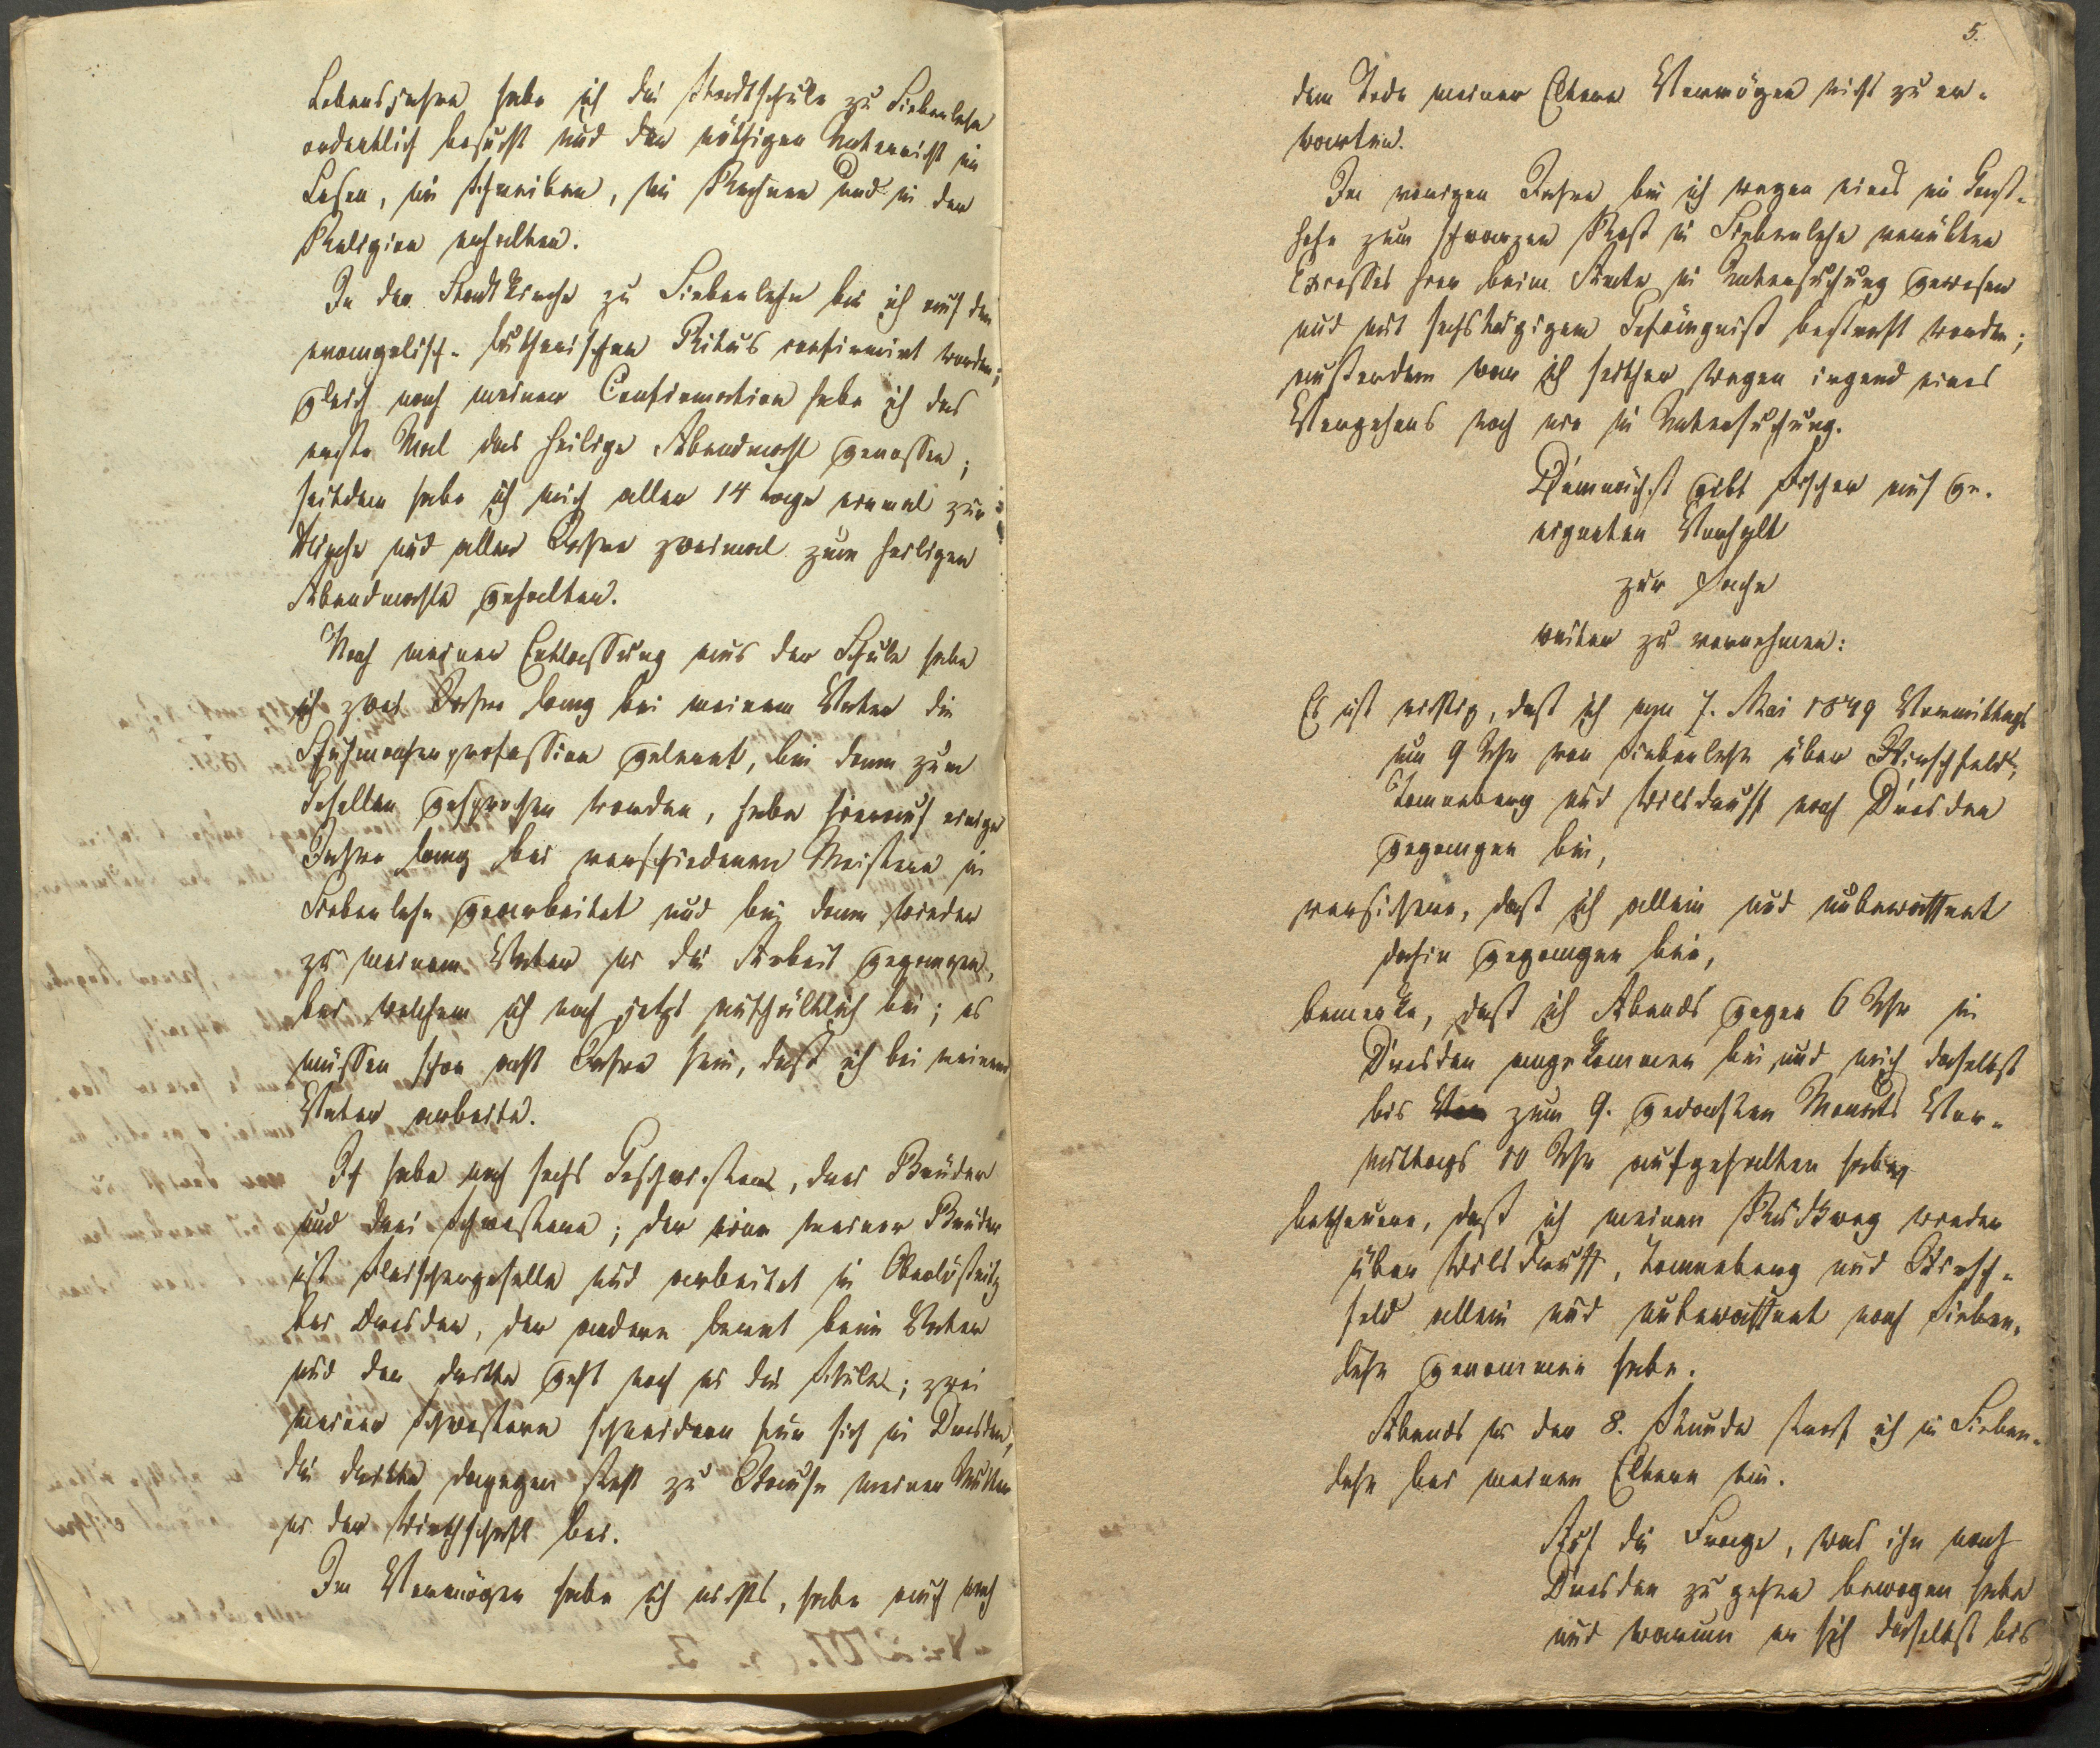 Lebensjahre habe ich die Stadtschule zu Siebenlehn
ordentlich besucht und den nöthigen Unterricht im
Lesen, im Schreiben, im Rechnen und in der
Religion erhalten.
In der Stadtkirche zu Siebenlehn bin ich nach dem
evangelisch-lutherischen Ritus confirmirt worden;
gleich nach meiner Confirmation habe ich das
erste Mal das heilige Abendmahl genossen;
seitdem habe ich mich aller 14 Tage einmal zur
Kirche und aller Jahre zweimal zum heiligen
Abendmahle gehalten.
Nach meiner Entlassung aus der Schule habe
ich zwei Jahre lang bei meinem Vater die
Schuhmacherprofession gelernt, bin dann zum
Gesellen gesprochen worden, habe hierauf einige
Jahre lang bei verschiedenen Meistern in
Siebenlehn gearbeitet und bin dann wieder
zu meinem Vater in die Arbeit gegangen,
bei welchem ich noch jetzt aufhältlich bin; es
müssen schon acht Jahre sein, daß ich bei meinem
Vater arbeite.
Ich habe noch sechs Geschwister, drei Brüder
und drei Schwestern; der eine meiner Brüder
ist Fleischergeselle und arbeitet in Oberlößnitz
bei Dresden, der andere lernt beim Vater
und der dritte geht noch in die Schule; zwei
meiner Schwestern schneidern für sich in Dresden,
die dritte dagegen steht zu Hause meiner Mutter
in der Wirthschaft bei.
Im Vermögen habe ich nichts, habe auch nach
5.
dem Tode meiner Eltern Vermögen nicht zu er-
warten.
Im vorigen Jahre bin ich wegen eines im Gast-
hofe zum schwarzen Roß in Siebenlehn verübten
Excesses hier beim Amte in Untersuchung gewesen
und mit sechstägigem Gefängniß bestraft worden;
außerdem war ich seither wegen irgend eines
Vergehens noch nie in Untersuchung.
Demnächst gibt Fischer auf ge-
eigneten Vorhalt
zur Sache
weiter zu vernehmen:
Es ist richtig, daß ich am 7. Mai 1849 Vormittags
um 9 Uhr von Siebenlehn über Hirschfeld,
Tanneberg und Wilsdruff nach Dresden
gegangen bin,
versichere, daß ich allein und unbewaffnet
dahin gegangen bin,
bemerke, daß ich Abends gegen 6 Uhr in
Dresden angekommen bin und mich daselbst
bis Vor zum 9. gedachten Monats Vor-
mittags 10 Uhr aufgehalten habe,
betheuere, daß ich meinen Rückweg wieder
über Wilsdruff, Tanneberg und Hirsch-
feld allein und unbewaffnet nach Sieben-
lehn genommen habe.
Abends in der 8. Stunde traf ich in Sieben-
lehn bei meinen Eltern ein.
Auf die Frage, was ihn nach
Dresden zu gehen bewogen habe
und warum er sich daselbst bis